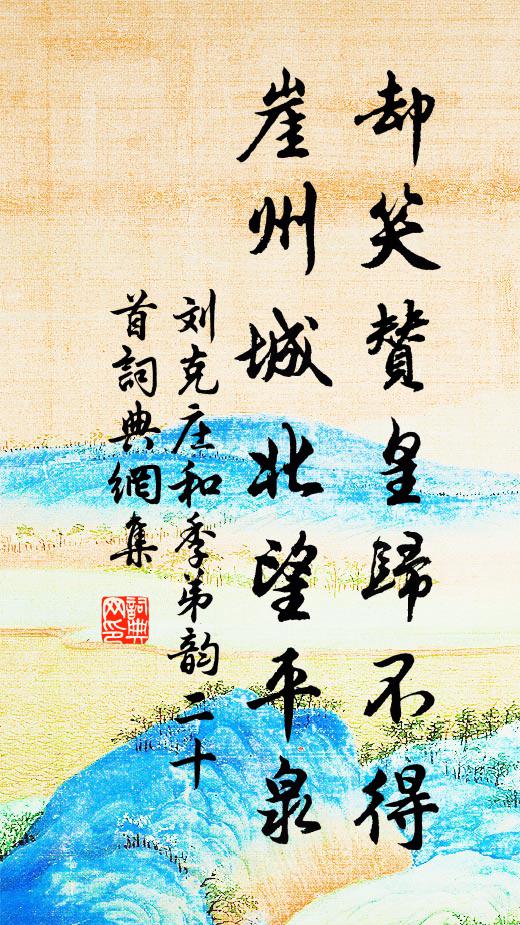 却笑贊皇歸不得
崖州城北望平泉
刘克庄和季弟韵二十
首詞典網集
詞典
网印